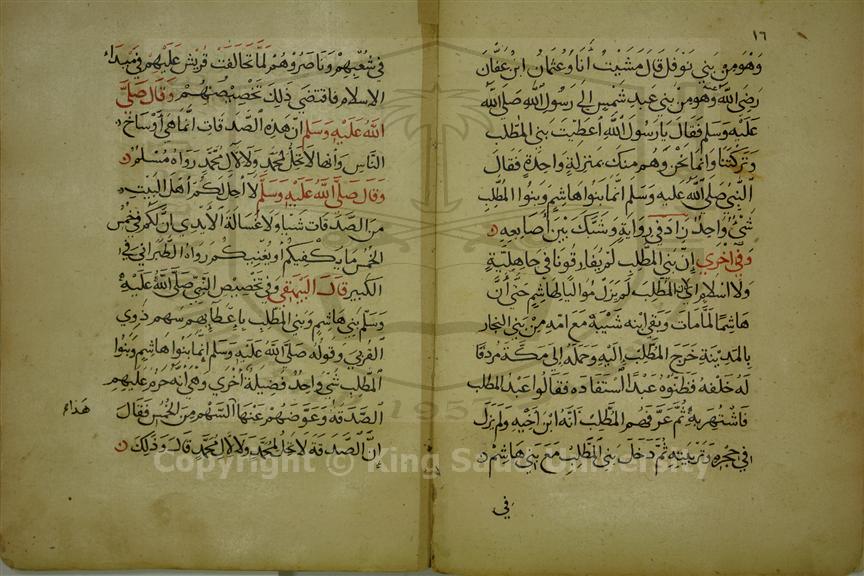 ١٦
وَهُوَ مِنْ بَنِي نَوفَل قَالَ مَشَيْتُ أَنَا وَعُثمَانُ ابْنُ عَفَّانَ
رَضِيَ اللّٰه وَهُوَ مِنْ بَنِي عَبدِ شَمْسٍ إِلَى رَسُولِ اللّٰه صَلَّى اللّٰهُ
عَلَيْهِ وَسَلَّم فَقَالَ يَا رَسُولَ اللّٰه أَعْطَيْتَ بَنِي المُطَّلِب
وَتَرَكْتَنَا وَإِنَّمَا نَحْنُ وَهُمْ مِنْكَ بِمَنزِلَةٍ وَاحِدَةٍ فَقَالَ
النَّبِيُّ صَلَّى اللّٰهُ عَلَيهِ وَسَلَّم إِنَّمَا بَنُوا هَاشِمٍ وَبَنُوا المُطَّلِب
شَيْءٌ وَاحِدٌ زَادَ فِي رِوَايَةٍ وَشَبَّكَ بَيْنَ أَصَابِعِهِ
وَفِي أُخْرَى إِنَّ بَنِي المُطَّلِب لَمْ يُفَارِقُونَا فِي جَاهِلِيَّةٍ
وَلَا اسْلَامٍ أَي لِأَنَّ المُطَّلِب لَمْ يَزَلْ مُوَالِيًا لِهَاشِمٍ حَتَّى أَنَّ
هَاشِمًا لَمَّا مَاتَ وَبَقِيَ ابْنُه شَيْبَة مَعَ أُمِّهِ مِنْ بَنِي النَّجَّار
بِالمَدِيْنَةِ خَرَجَ المُطَّلِب إِلَيْهِ وَحَمَلَهُ إِلَى مَكَّةَ مُرْدِفًا
لَهُ خَلْفَهُ فَظَنُّوهُ عَبْدًا اسْتَفَادَه فَقَالُوا عَبْدُ المطلب
فَاشْتُهِرَ بِهِ ثُمَّ عَرَّفَهُم المُطَّلِب أَنَّهُ ابْنُ أَخِيْهِ وَلَمْ يَزَلْ
فِي حِجْرِهِ وَتَرْبِيَتِهِ ثُمَّ دَخَلَ بَنِي المُطَّلِب مَعَ بَنِي هَاشِمٍ
في
في شُعَبِهِمْ وَنَاصَرُوهُمْ لَمَّا تَحَالَفَتْ قُرَيْش عَلَيْهِمْ فِي مَبْدَاءِ
الاسْلَام فَاقْتَضَى ذٰلِكَ تَخْصِيْصَهُمْ وَقَالَ صَلَّى
اللّٰهُ عَلَيْهِ وَسَلَّم إِنَّ هَذِهِ الصَّدَقَات إِنَّمَا هِيَ أَوْسَاخُ
النَّاسِ وَإِنَّهَا لَا تَحِلُّ لِمُحَمَّدٍ وَلَا لِآلِ مُحَمَّدٍ رَوَاهُ مُسْلِمٌ
وَقَالَ صَلَّى اللّٰهُ عَلَيْهِ وَسَلَّمَ لَا أُحِلُّ لَكُمْ أَهْلَ البَيْتِ
مِنَ الصَّدَقَات شَيْئًا وَلَا غُسَالَةَ الأَيْدِي إِنَّ لَكُمْ فِي خُمُسِ
الخُمُسِ مَا يَكْفِيكُمْ أَو يُغْنِيكُمْ رَوَاهُ الطَّبَرَانِي فِي
الكَبِيرِ قَالَ البَيْهَقِي وَفِي تَخْصِيْصِ النَّبِيِّ صَلَّى اللّٰهُ عَلَيْهِ
وَسَلَّم بَنِي هَاشِمٍ وَبَنِي المُطَّلِب بِإِعْطَائِهِمْ سَهْم ذَوِي
القُرْبَى وَقَولِهِ صَلَّى اللّٰهُ عَلَيْهِ وَسَلَّم إِنَّمَا بَنُوا هَاشِمٍ وَبَنُوا
المُطَّلِب شَيْءٌ وَاحِدٌ فَضِيْلَةٌ أُخْرَى وَهِيَ أَنَّهُ حَرَّمَ عَلَيْهِمِ
الصَّدَقَةَ وَعَوَّضَهُمْ عَنْهَا السَّهْمَ مِنَ الخُمُسِ فَقَالَ
إِنَّ الصَّدَقَةَ لَا تَحِلُّ لِمُحَمَّدٍ وَلَا لِآلِ مُحَمَّدٍ قَالَ وَذٰلِكَ
Copyright © King Saud University
1957